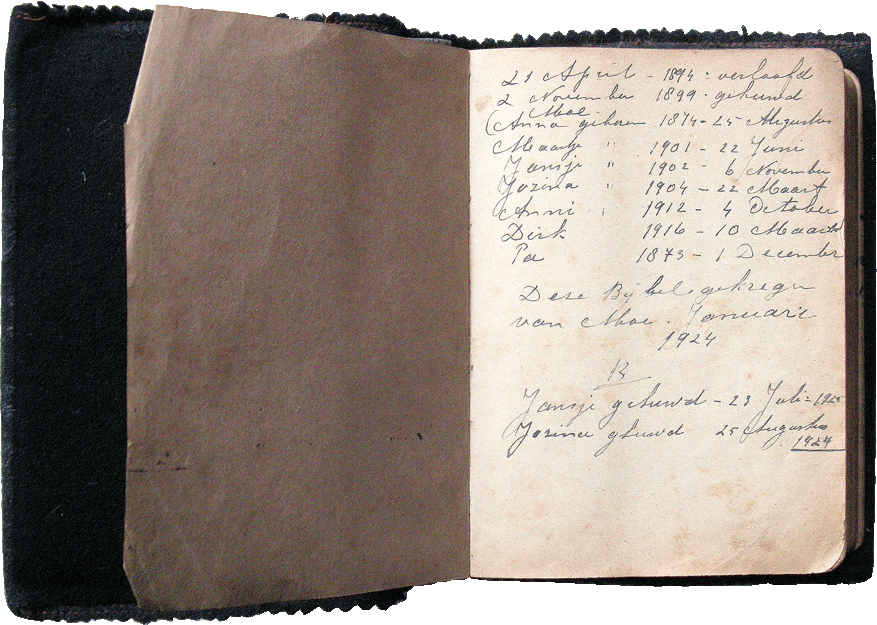 21 April - 1894 : verloofd
2 November 1899 . gehuwd
Moe
(Anna geboren 1874 - 25 Augustus
Maartje " 1901 - 22 Juni
Jansje " 1902 - 6 November
Jozina " 1904 - 22 Maart
Anni " 1912 - 4 October
Dirk 1916 - 10 Maart
Pa 1873 - 1 December
Deze Bijbel gekregen
van Moe . Januarie
1924
Jansje gehuwd - 23 Juli = 1925
Jozina gehuwd 25 Augustus
1927